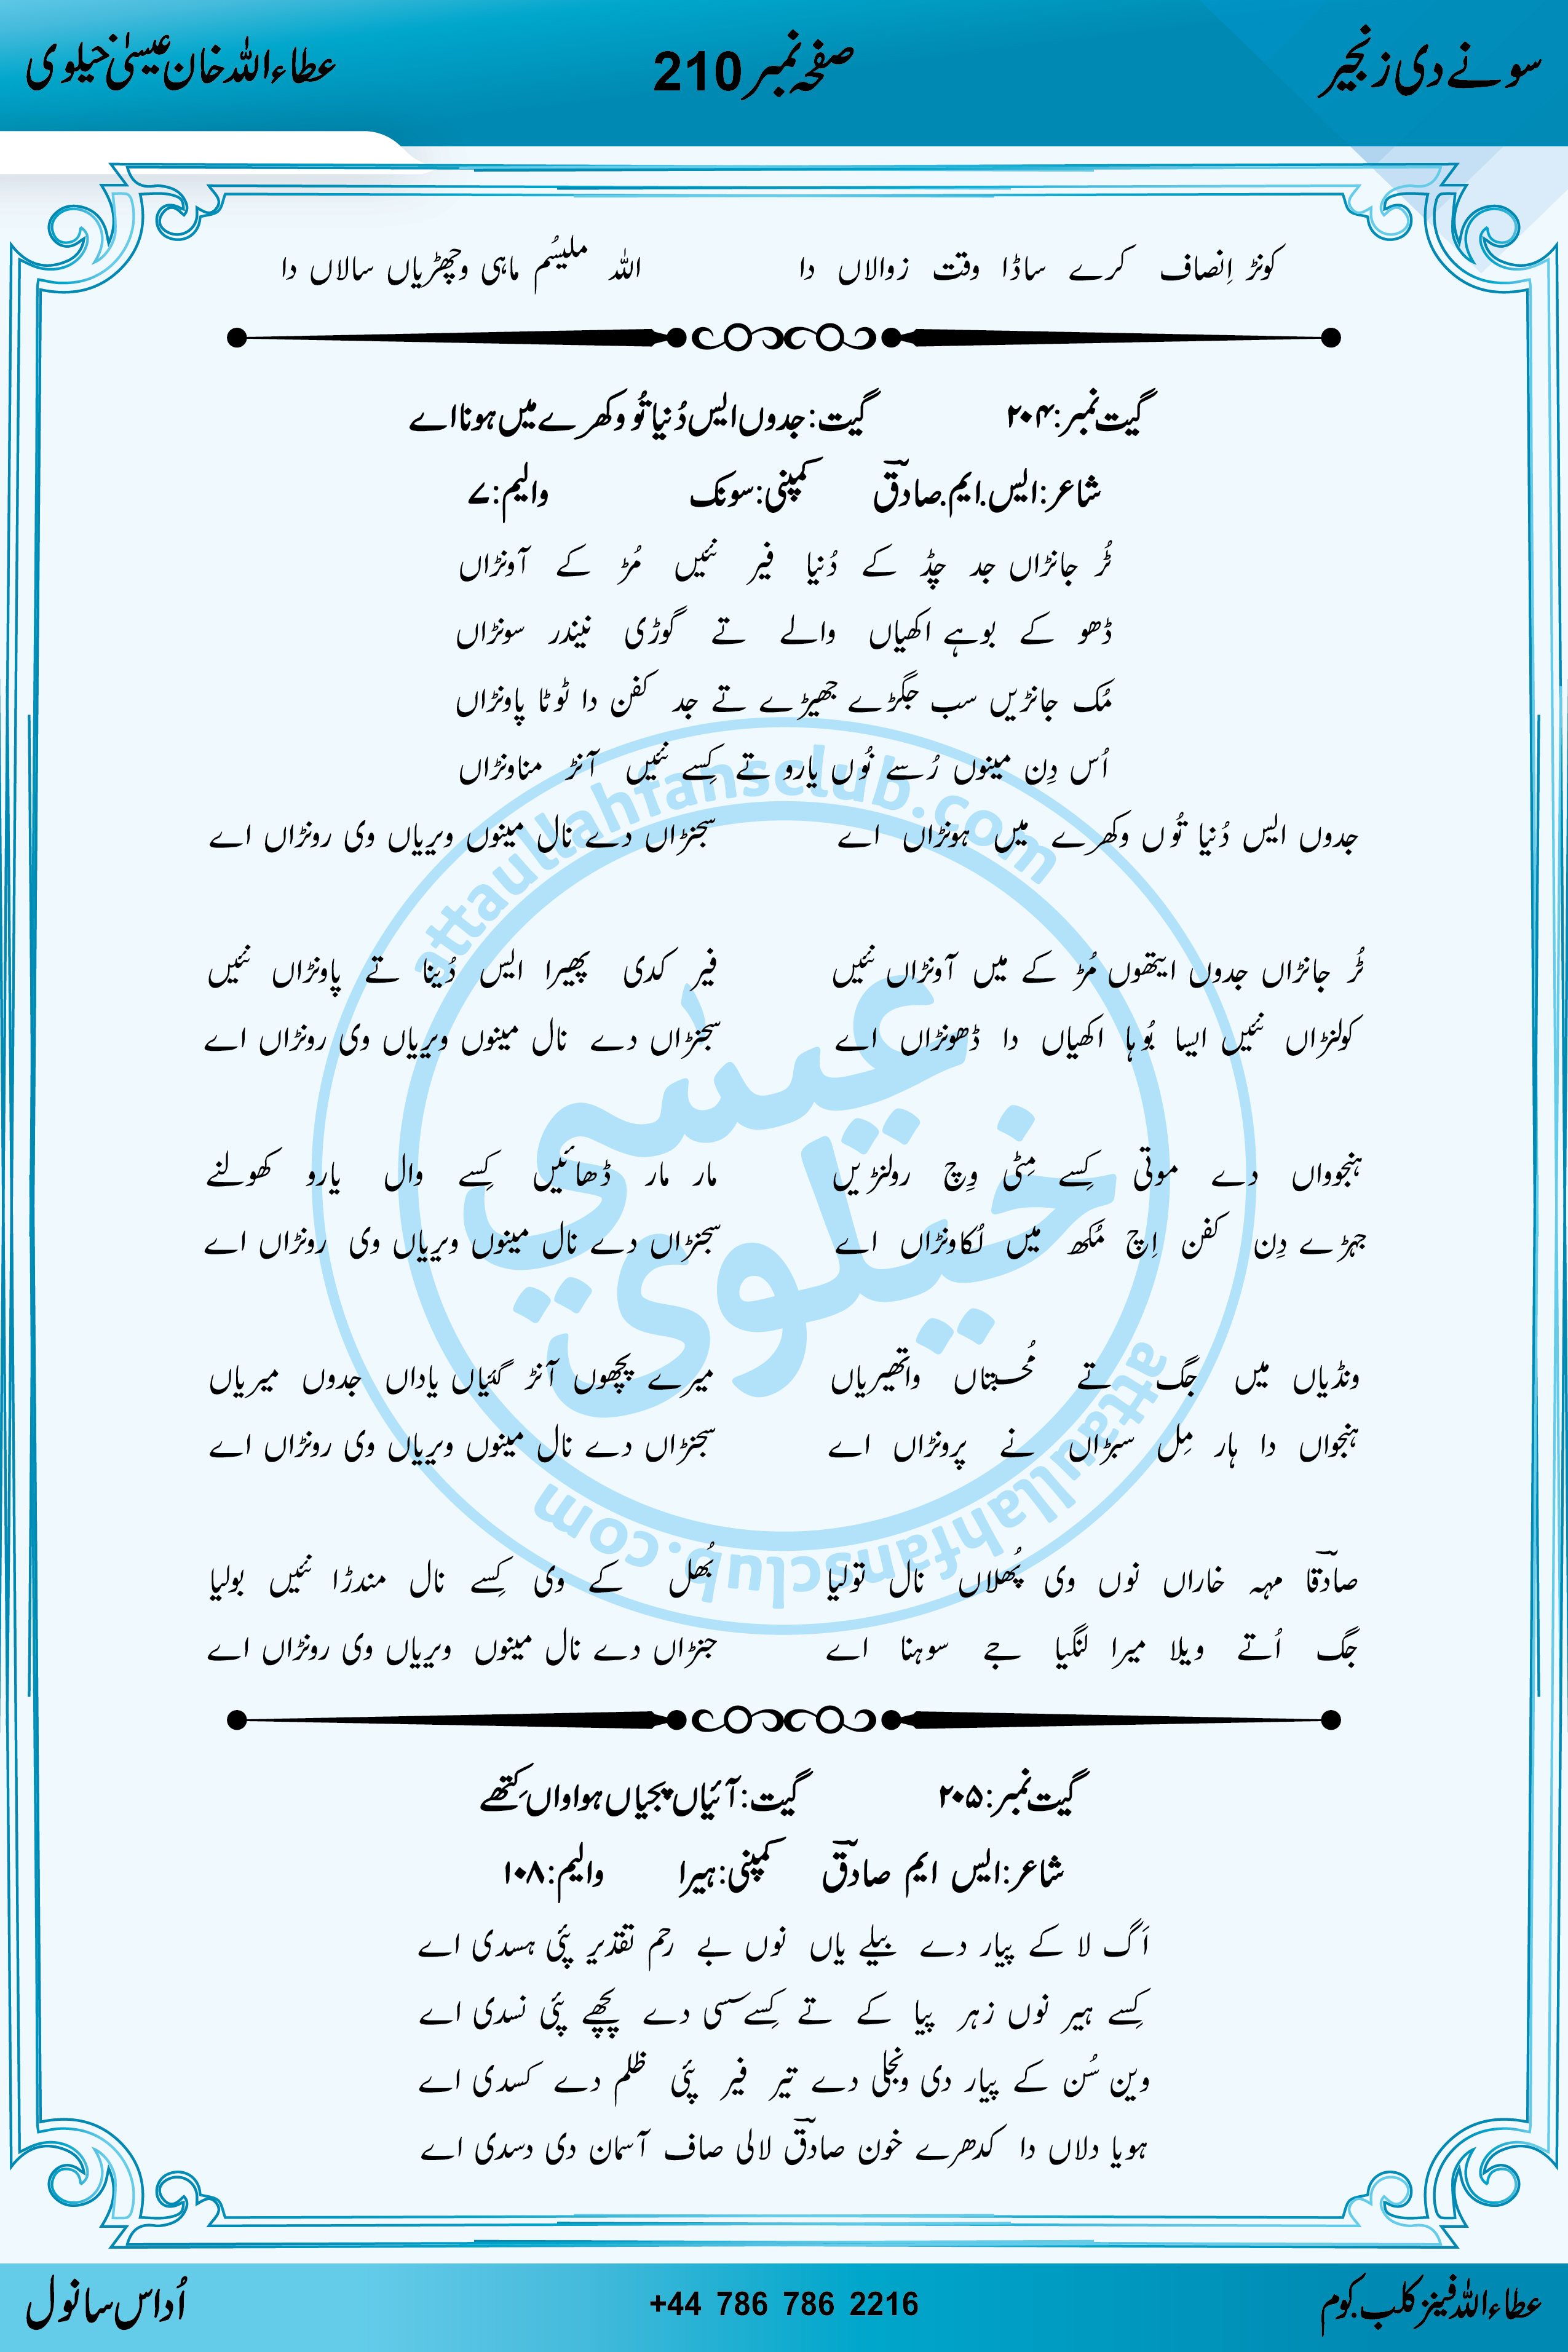 سونے دی زنجیر صفحہ نمبر 210 عطاءاللہ خان عیسیٰ خیلوی
کونڑ اِنصاف کرے ساڈا وقت زوالاں دا اللہ ملیسُم ماہی وچھڑیاں سالاں دا
گیت نمبر:۲۰۴ گیت: جدوں ایس دُنیا تُو وکھرے میں ہونا اے
شاعر: ایس.ایم.صادقؔ کمپنی: سونک والیم: ۷
ٹُر جانڑاں جد چِڈ کے دُنیا فیر نئیں مُڑ کے آونڑاں
ڈھو کے بوہے اکھیاں والے تے گوڑی نیندر سونڑاں
مُک جانڑیں سب جگڑے جھیڑے تے جد کفن دا ٹوٹا پاونڑاں
اُس دِن مینوں رُسے نُوں یارو تے کِسے نئیں آنڑ مناونڑاں
جدوں ایس دُنیا تُوں وکھرے میں ہونڑاں اے سجنڑاں دے نال مینوں ویریاں وی رونڑاں اے
ٹُر جانڑاں جدوں ایتھوں مُڑ کے میں آونڑاں نئیں فیر کدی پھیرا ایس دُینا تے پاونڑاں نئیں
کولنڑاں نئیں ایسا بُوہا اکھیاں دا ڈھونڑاں اے سجنڑاں دے نال مینوں ویریاں وی رونڑاں اے
ہنجوواں دے موتی کِسے مِٹی وِچ رولنڑیں مار مار ڈھائیں کِسے وال یارو کھولنے
جہڑے دِن کفن اِچ مُکھ میں لُکاونڑاں اے سجنڑاں دے نال مینوں ویریاں وی رونڑاں اے
ونڈیاں میں جگ تے مُحبتاں واتھیریاں میرے پچھوں آنڑ گئیاں یاداں جدوں میریاں
ہنجواں دا ہار مِل سبڑاں نے پرونڑاں اے سجنڑاں دے نال مینوں ویریاں وی رونڑاں اے
صادقؔا مہہ خاراں نوں وی پُھلاں نال تولیا بُھل کے وی کِسے نال مندڑا نئیں بولیا
جگ اُتے ویلا میرا لنگیا جے سوہنا اے جنڑاں دے نال مینوں ویریاں وی رونڑاں اے
گیت نمبر:۲۰۵ گیت: آئیاں پجیاں ہواواں کِتھے
شاعر: ایس ایم صادقؔ کمپنی: ہیرا والیم: ۱۰۸
اَگ لا کے پیار دے بیلے یاں نوں بے رحم تقدیر پئی ہسدی اے
کِسے ہیر نوں زہر پیا کے تے کِسے سسی دے پچھے پئی نسدی اے
وین سُن کے پیار دی ونجلی دے تیر فیر پئی ظلم دے کسدی اے
ہویا دلاں دا کدھرے خون صادقؔ لالی صاف آسمان دی دسدی اے
attaullahfansclub.com
عیسیٰ
خیلوی
attaullahfansclub.com
عطاءاللہ فینز کلب.کوم +44 786 786 2216 اُداس سانول